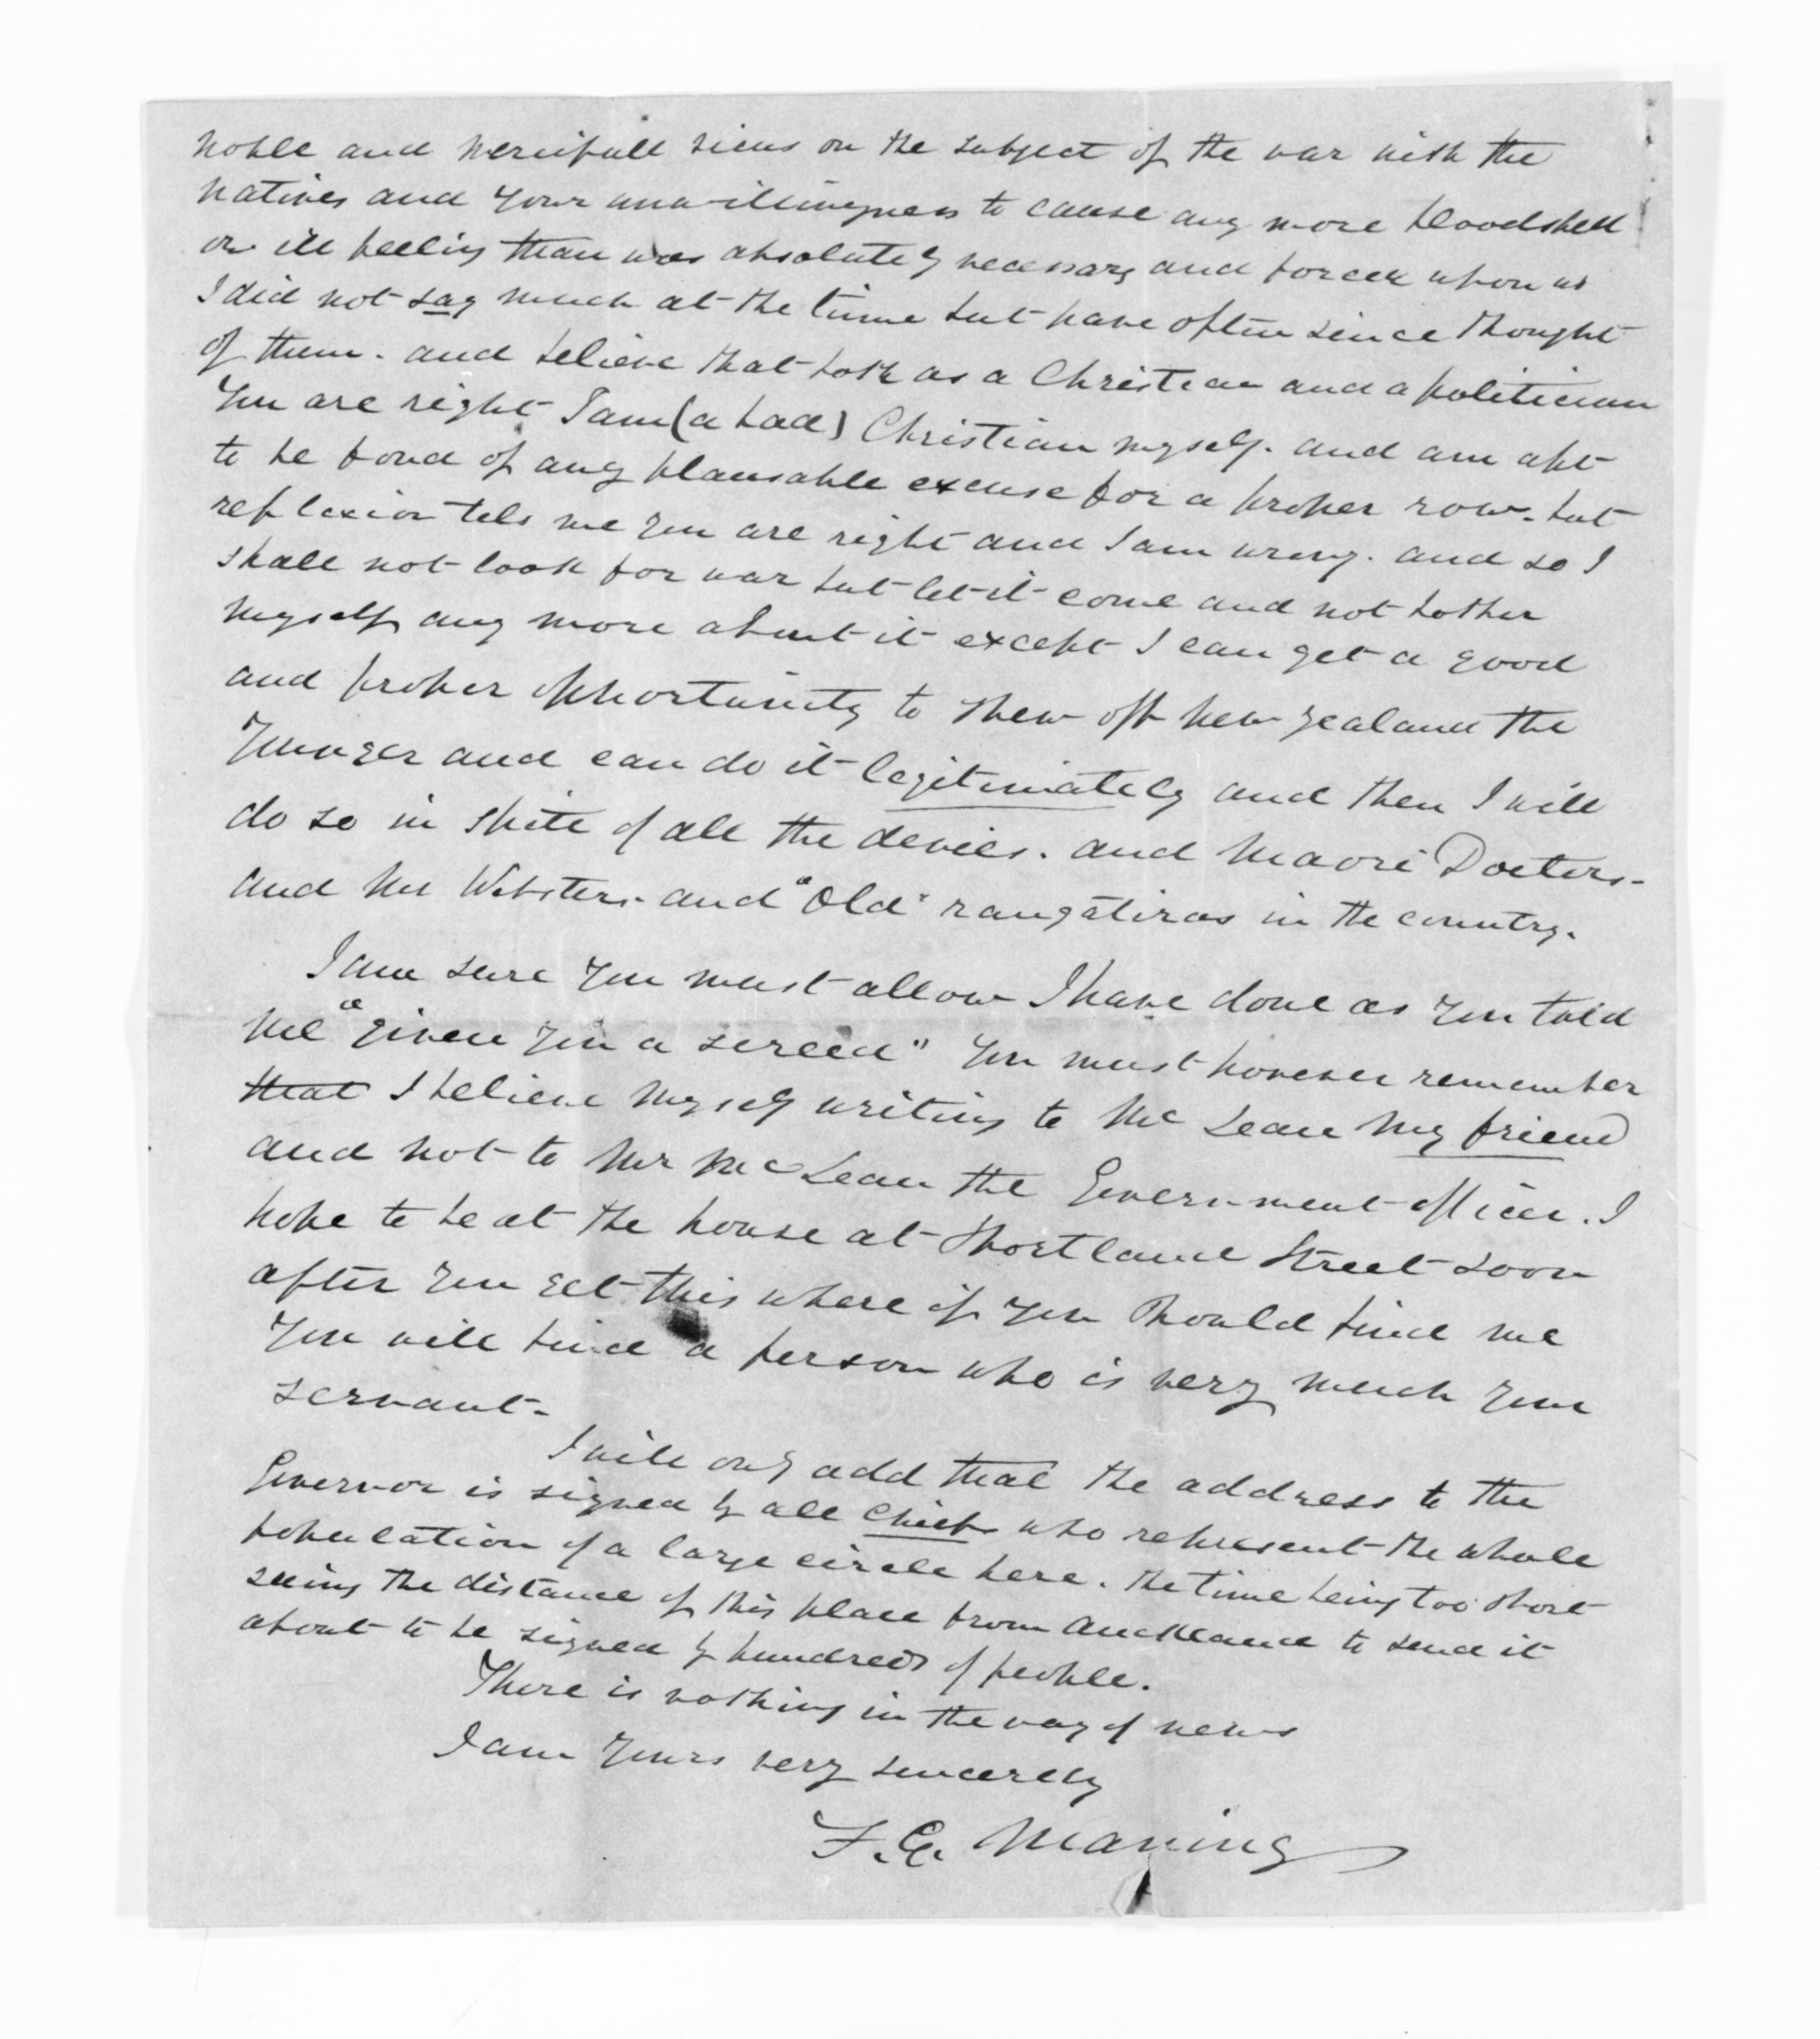 noble and mercifull views on the subject of the war with the
natives and your unwillingness to cause any more bloodshed
or ill feeling than was absolutely necessary and forced upon us
I did not say much at the time but have often since thought
of them. and believe that both as a Christian and a politician
you are right I am (a bad) Christian myself. and am apt
to be fond of any plausable excuse for a proper row. but
reflexion tels me you are right and I am wrong. and so I
shall not look for war but let it come and not bother
myself any more about it except I can get a good
and proper opportunity to shew off new zealand the
younger and can do it legitimately and then I will
do so in spite of all the devils. and Maori Doctors.
and Mr Websters. and "Old" rangatiras in the country.
I am sure you must allow I have done as you told
me "given you a screed" you must however remember
that I believe myself writing to Mc Lean my friend
and not to Mr Mc Lean the Government officer. I
hope to be at the house at Shortland Street soon
after you get this where if you should find me
you will find a person who is very much your
servant.
I will only add that the address to the
Governor is signed by all chiefs who represent the whole
population of a large circle here. the time being too short
seeing the distance of this place from Auckland to send it
about to be signed by hundreds of people.
There is nothing in the way of news
I am yours very sincerely
F. E. Maning